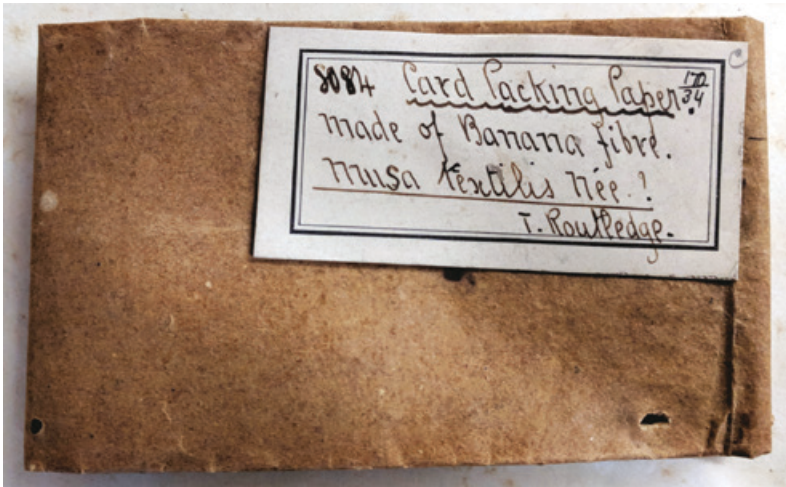 8084 Card Packing Paper. 170/34
made of Banana fibre.
Musa textilis Née.!
T. Routledge.